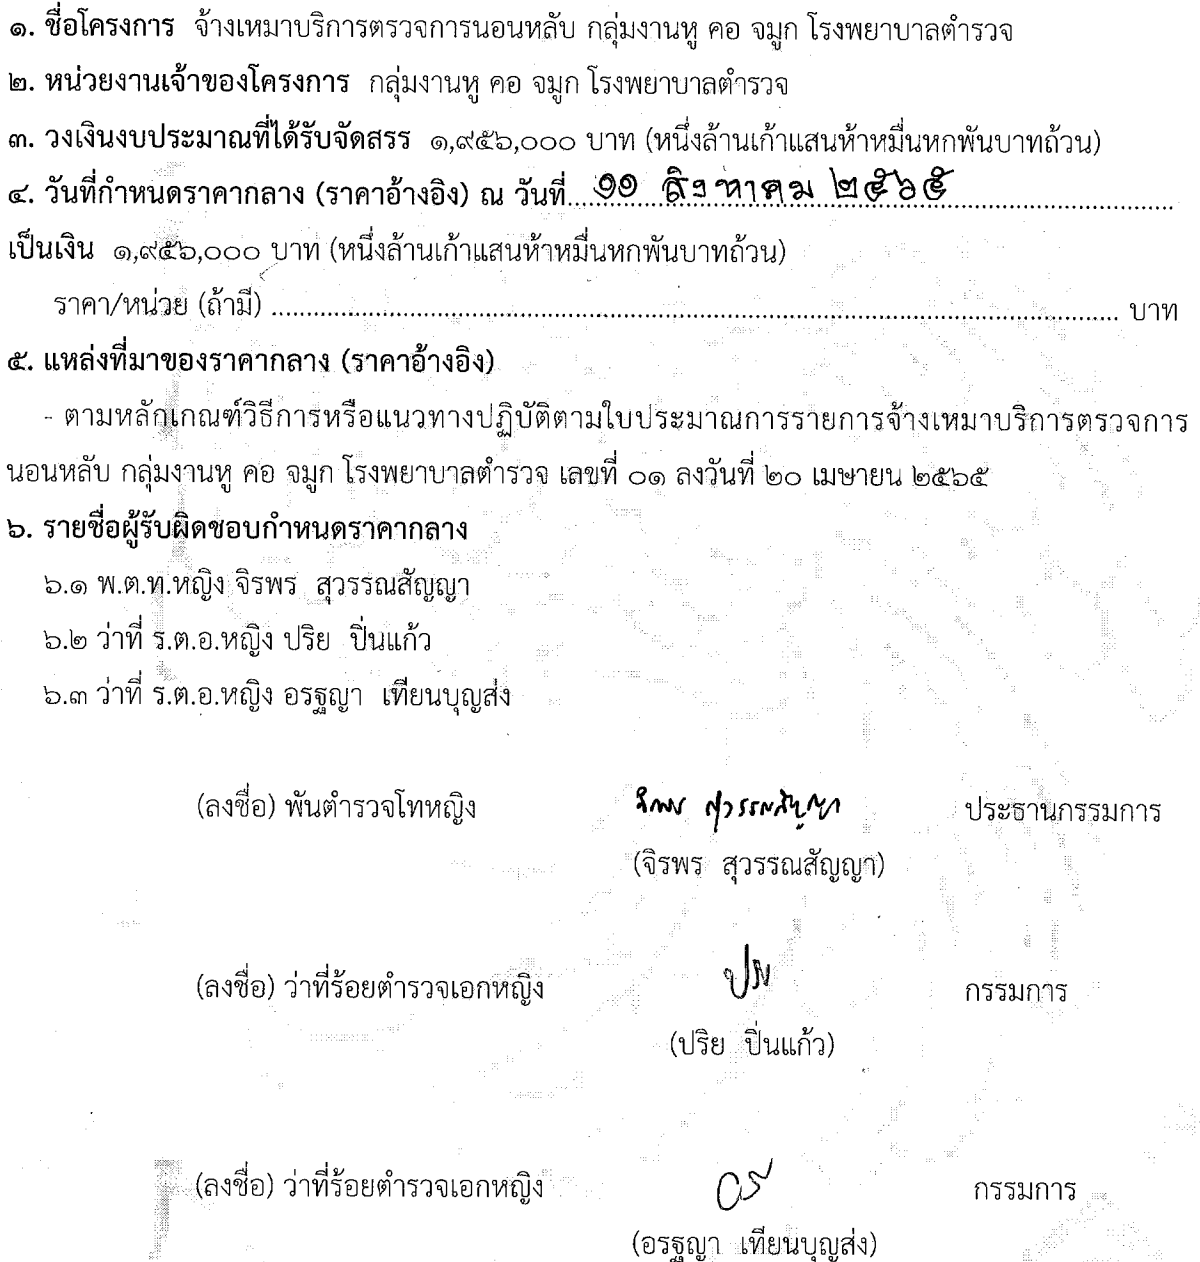 ๑. ชื่อโครงการ จ้างเหมาบริการตรวจการนอนหลับ กลุ่มงานหู คอ จมูก โรงพยาบาลตำรวจ
๒. หน่วยงานเจ้าของโครงการ กลุ่มงานหู คอ จมูก โรงพยาบาลตำรวจ
๓. วงเงินงบประมาณที่ได้รับจัดสรร ๑,๙๕๖,๐๐๐ บาท (หนึ่งล้านเก้าแสนห้าหมื่นหกพันบาทถ้วน)
๔. วันที่กำหนดราคากลาง (ราคาอ้างอิง) ณ วันที่ ๑๑ สิงหาคม ๒๕๖๕
เป็นเงิน ๑,๙๕๖,๐๐๐ บาท (หนึ่งล้านเก้าแสนห้าหมื่นหกพันบาทถ้วน)
ราคา/หน่วย (ถ้ามี) ........................ บาท
๕. แหล่งที่มาของราคากลาง (ราคาอ้างอิง)
- ตามหลักเกณฑ์วิธีการหรือแนวทางปฏิบัติตามใบประมาณการรายการจ้างเหมาบริการตรวจการ
นอนหลับ กลุ่มงานหู คอ จมูก โรงพยาบาลตำรวจ เลขที่ ๐๑ ลงวันที่ ๒๐ เมษายน ๒๕๖๕
๖. รายชื่อผู้รับผิดชอบกำหนดราคากลาง
๖.๑ พ.ต.ท.หญิง จิรพร สุวรรณสัญญา
๖.๒ ว่าที่ ร.ต.อ.หญิง ปริย ปิ่นแก้ว
๖.๓ ว่าที่ ร.ต.อ.หญิง อรฐญา เทียนบุญส่ง
(ลงชื่อ) พันตำรวจโทหญิง จิรพร สุวรรณสัญญา ประธานกรรมการ
(จิรพร สุวรรณสัญญา)
(ลงชื่อ) ว่าที่ร้อยตำรวจเอกหญิง กรรมการ
(ปริย ปิ่นแก้ว)
(ลงชื่อ) ว่าที่ร้อยตำรวจเอกหญิง กรรมการ
(อรฐญา เทียนบุญส่ง)